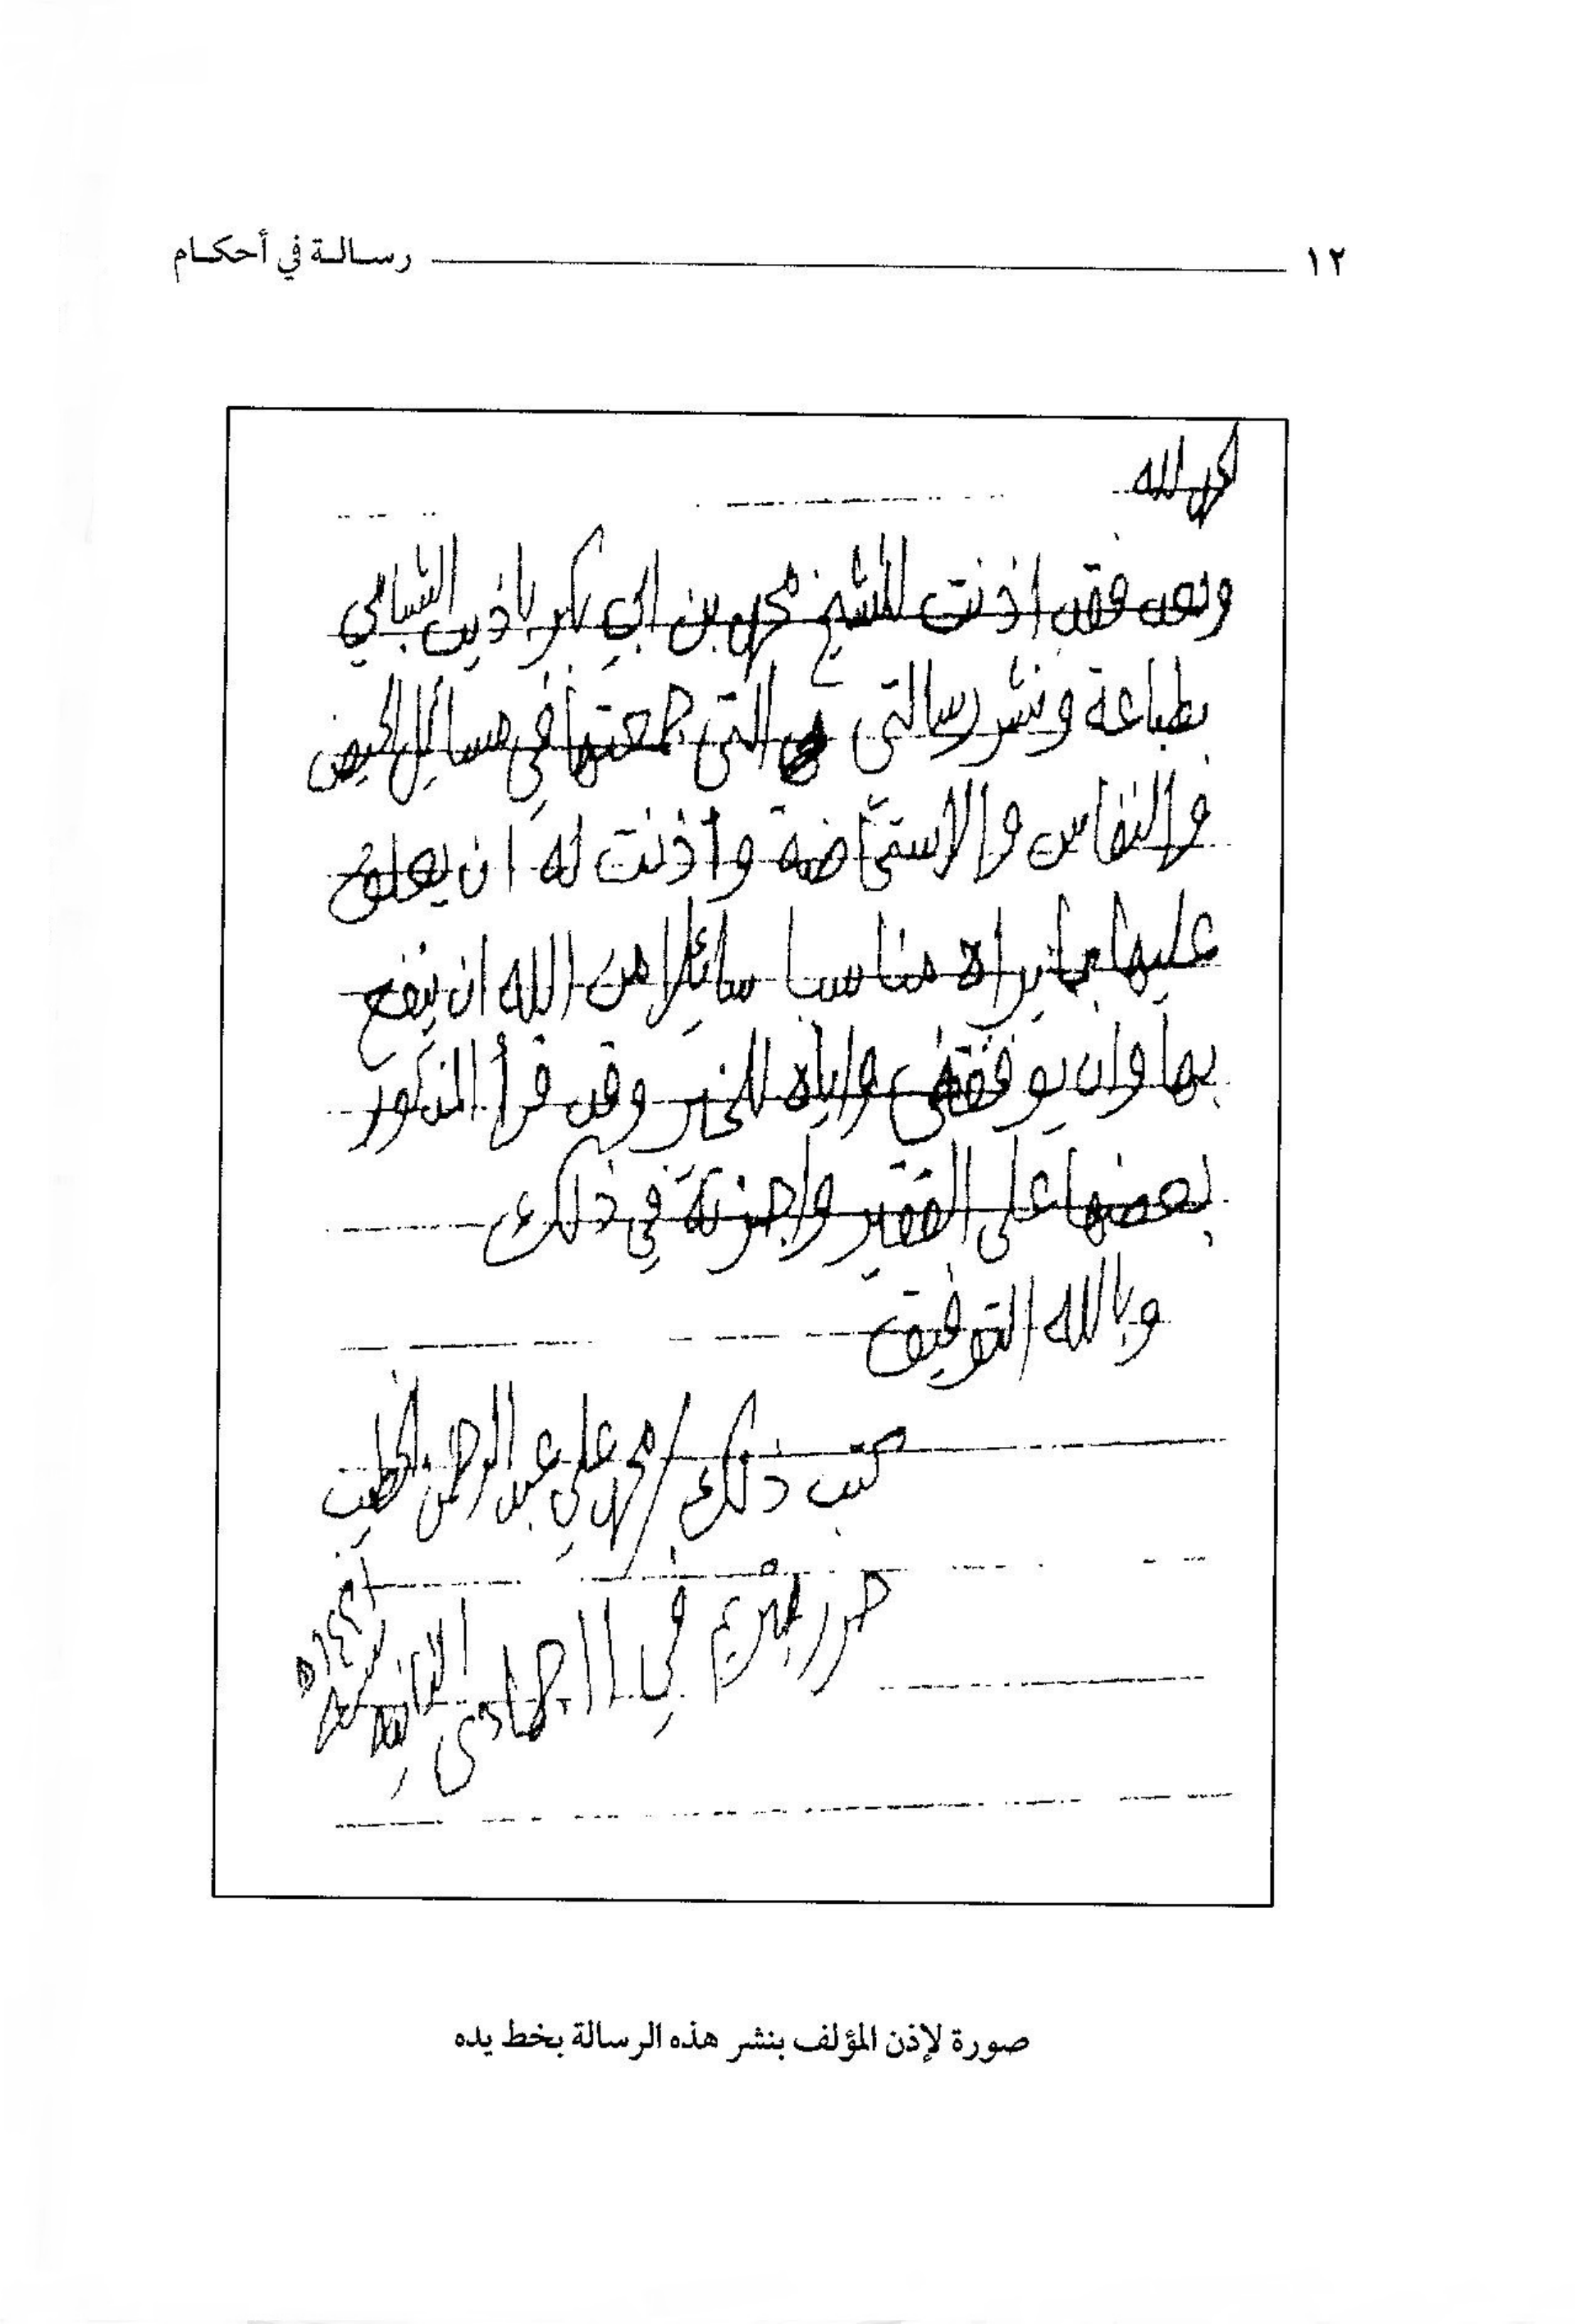 ١٢ رسالة في أحكام
الحمد لله
وبعد فقد اذنت للشيخ محمد بن ابي بكر باذيب الشبامي
بطباعة ونشر رسالتي التي جمعتها في مسائل الحيض
والنفاس والاستحاضة وأذنت له ان يعلق
عليها بما يراه مناسبا سائلا من الله ان ينفع
بها وان يوفقني واياه للخير وقد قرأ المذكور
بعضها على الفقير واجزته في ذلك
وبالله التوفيق
كتب ذلك / محمد علي عبد الرحمن الخطيب
حرر بتريم في جمادى الثانية سنة
صورة لإذن المؤلف بنشر هذه الرسالة بخط يده